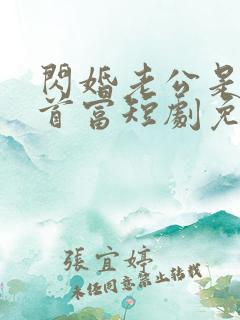 閃婚老公是
首富短劇免
張宜婷
未经同意禁止转载